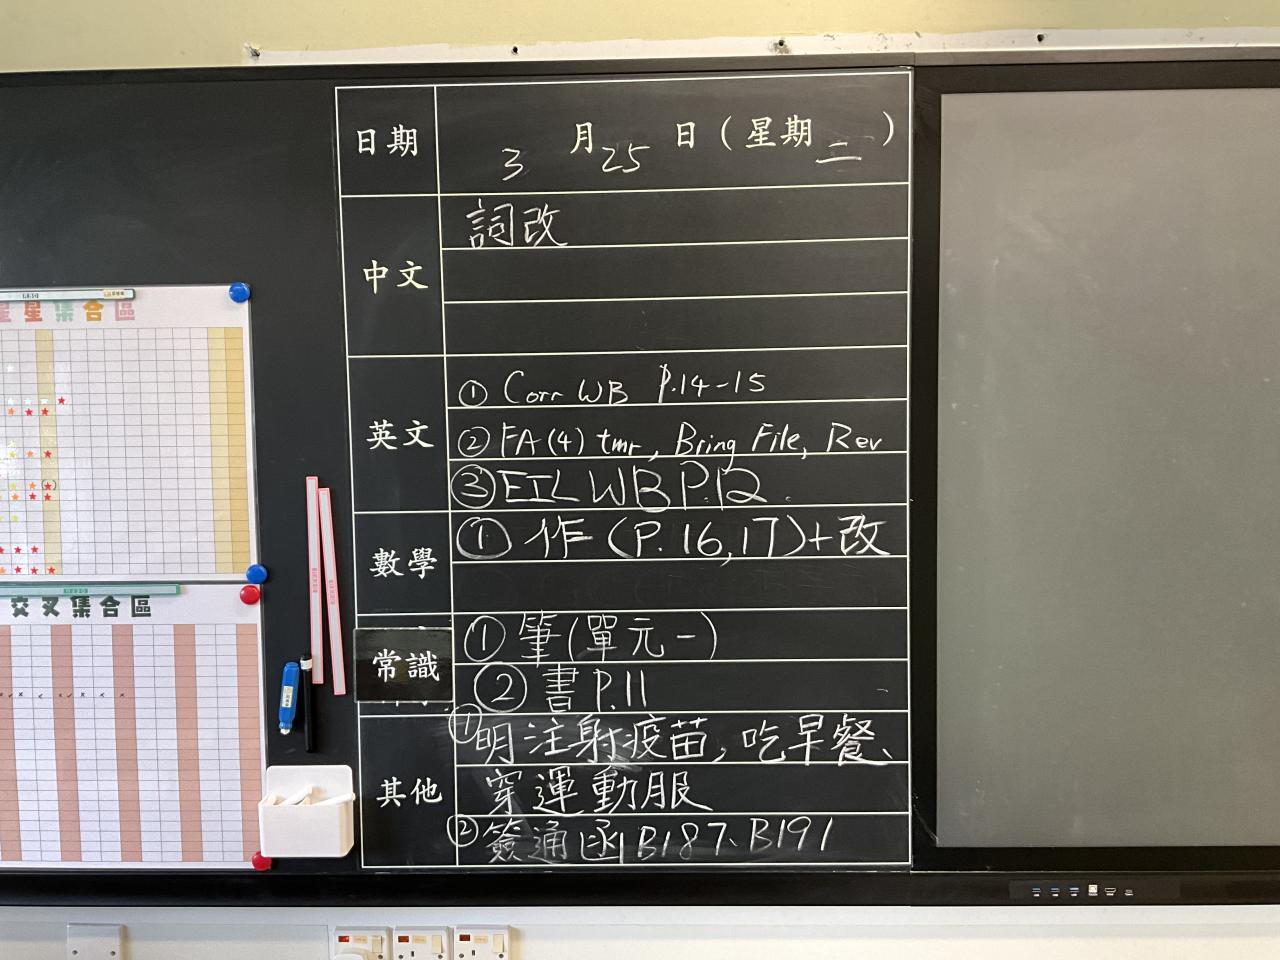 日期 3月25日(星期二)
中文 詞改
英文 ① Corr WB P.14-15
② FA(4) tmr, Bring File, Rev
③ EIL WB P.12.
數學 ① 作(P.16,17)+改
常識 ① 筆(單元一)
② 書P.11
其他 ①明注射疫苗,吃早餐、
穿運動服
②簽通函B187、B191
星星集合區
交叉集合區